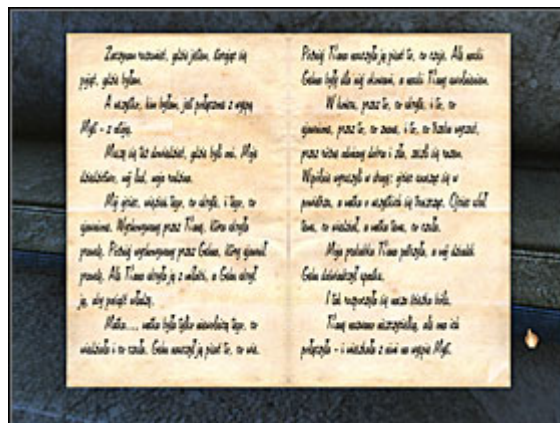 Zaczynam rozumieć, gdzie jestem, starając się
pojąć, gdzie byłem.
A wszystko, kim byłem, jest połączone z wyspą
Myst - z
Muszę się też dowiedzieć, gdzie byli oni. Moje
dziedzictwo, mój lud, moja rodzina.
Mój ojciec, więzień tego, co ukryte, i tego, co
ujawnione. Wychowywany przez Ti'anę, która ukryła
prawdę. Później wychowywany przez Gehna, który ujawnił
prawdę. Ale Ti'ana ukryła ją z miłości, a Gehn ukrył
ją, aby posiąść władzę.
Matka..., matka była tylko niewolnicą tego, co
wiedziała i co czuła. Gehn nauczył ją pisać to, co wie.
Później Ti'ana nauczyła ją pisać to, co czuje. Ale nauki
Gehna były dla niej okowami, a nauki Ti'any uwolnieniem.
W końcu, przez to, co ukryte, i to, co
ujawnione, przez to, co znane, i to, co trzeba wyczuć,
przez różne odmiany dobra i zła, zeszli się razem.
Wspólnie wyruszyli w drogę; ojciec
a matka o wszystkich się troszcząc. Ojciec ufał
temu, co wiedział, a matka temu, co czuła.
Moja prababka Ti'ana patrzyła, a mój dziadek
Gehn doświadczył upadku.
I tak rozpoczęła się nasza ścieżka bólu.
Ti'anę nazwano nieszczęśliwą, ale ona ich
połączyła - i mieszkała z nimi na wyspie Myst.